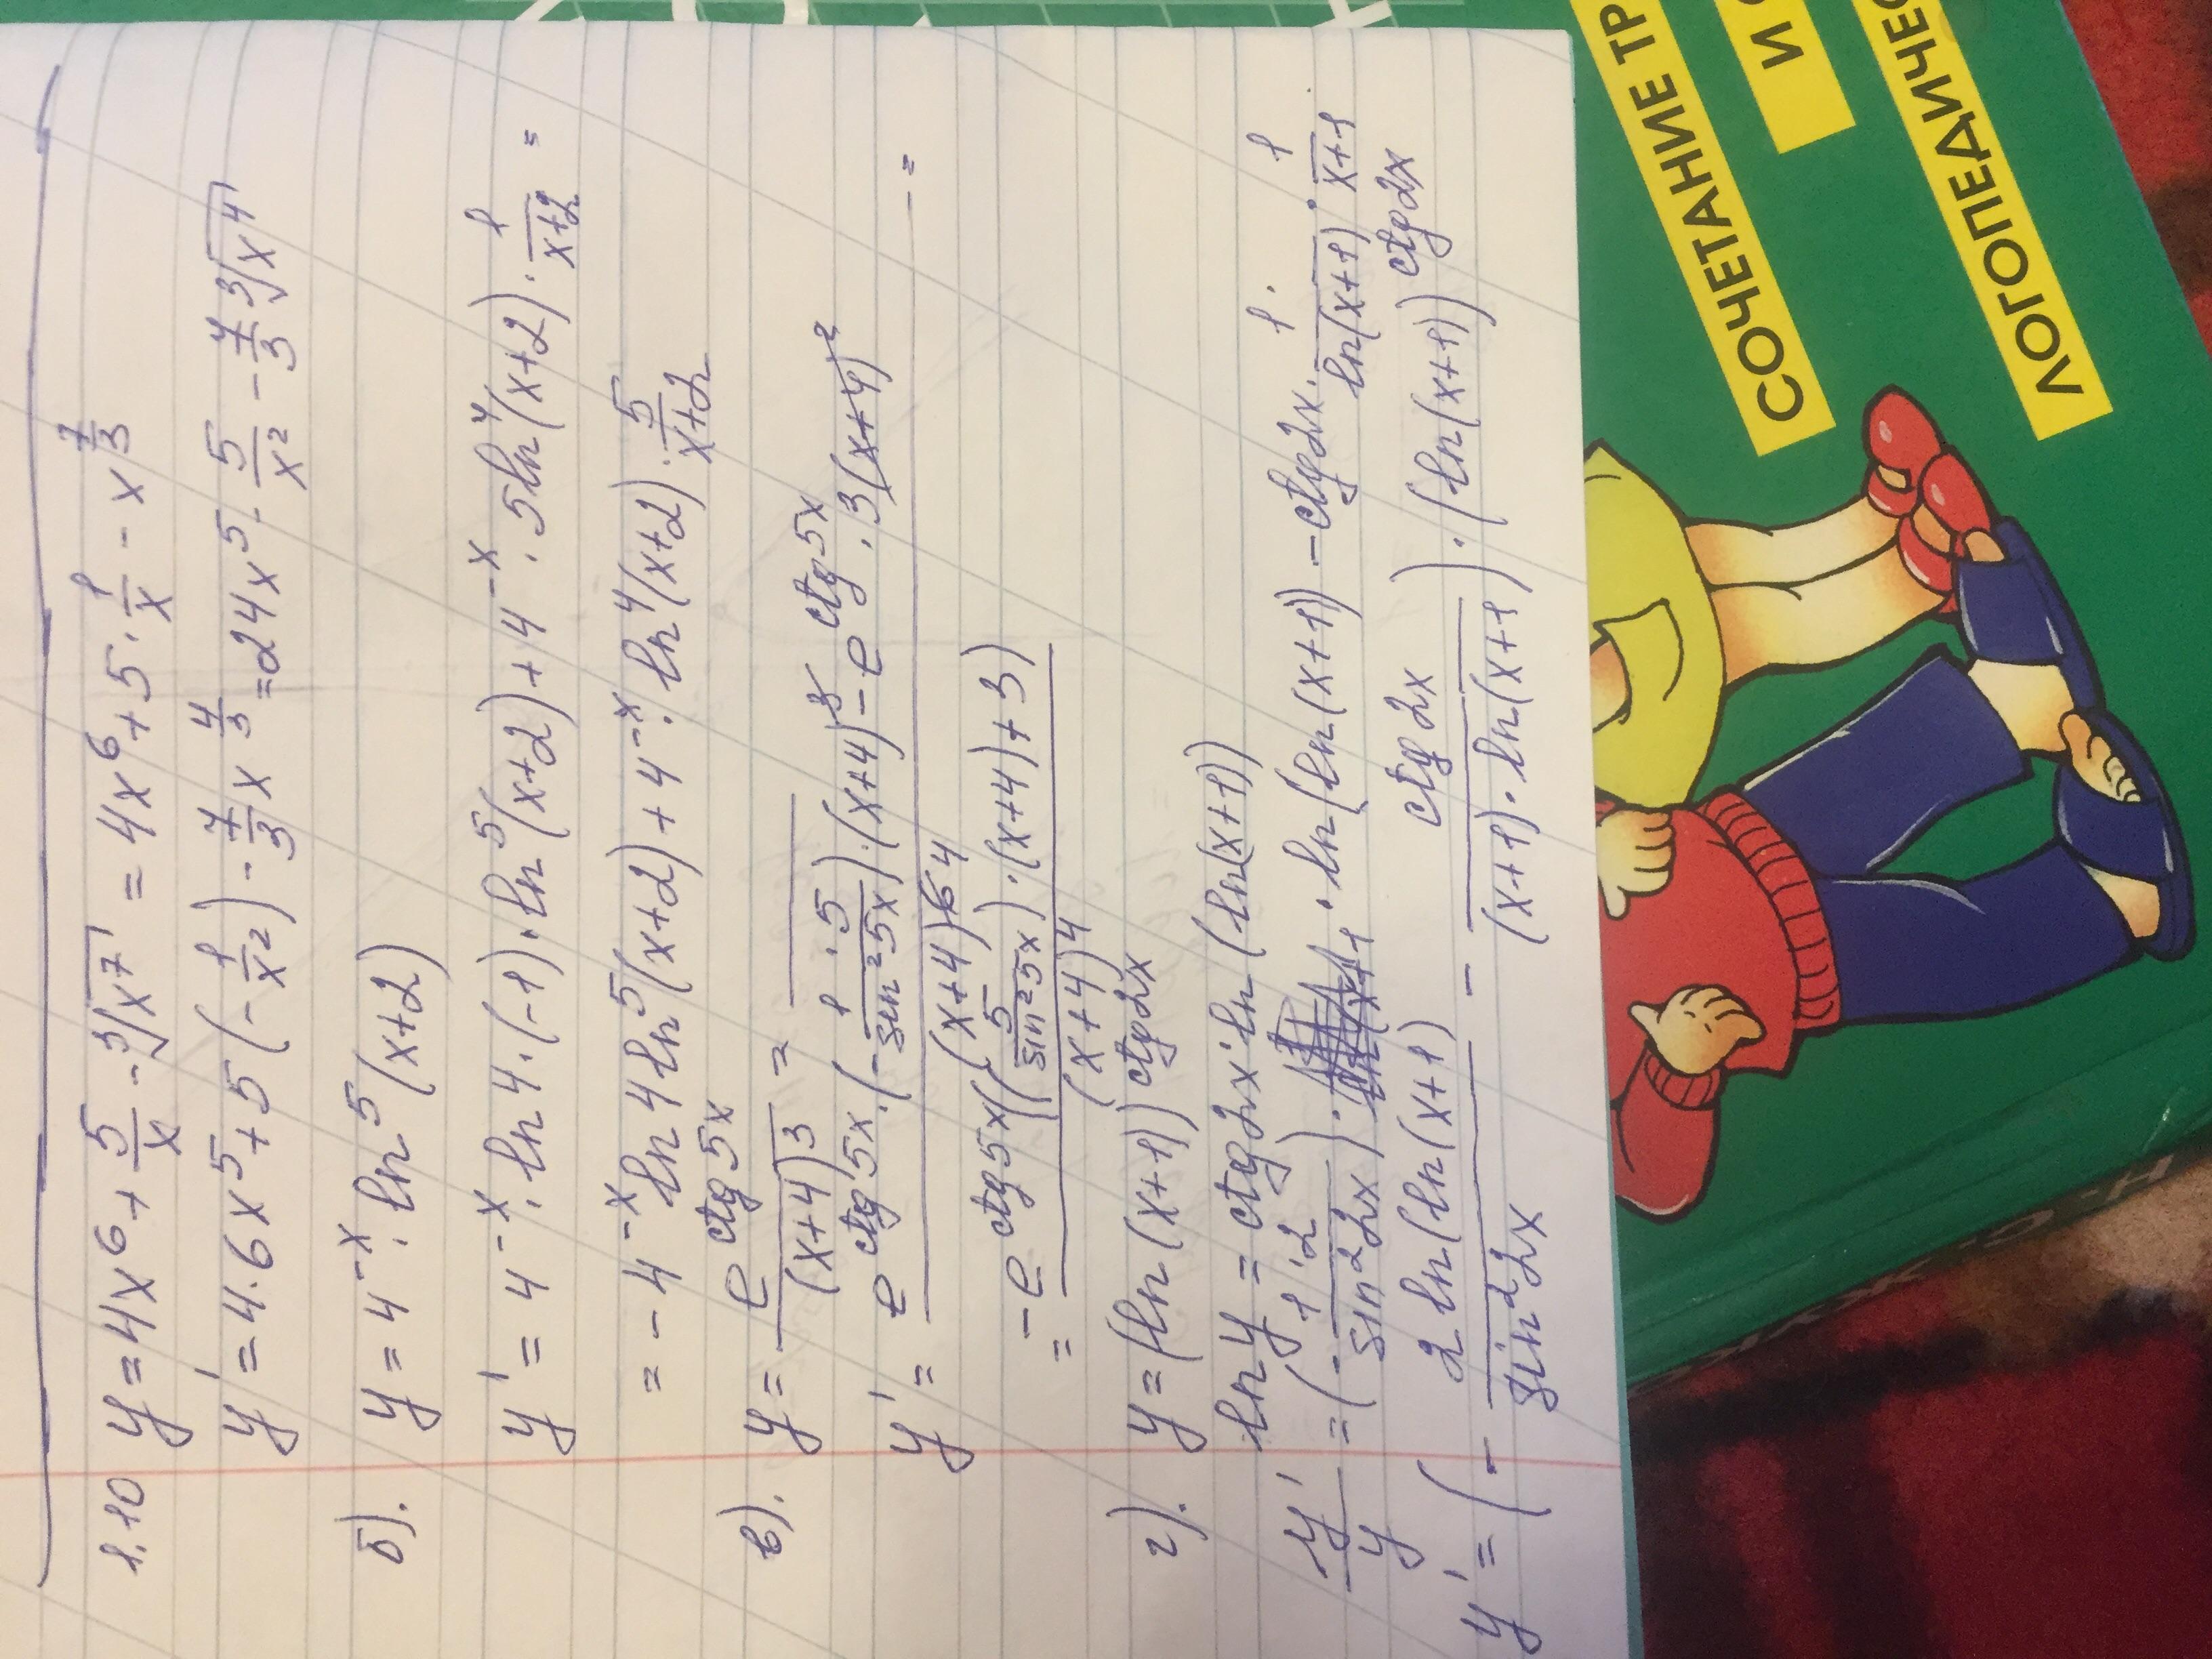 1.10 y = 4x⁶ + 5/x - ³√x⁷ = 4x⁶ + 5 · 1/x - x^(7/3)
y' = 4·6x⁵ + 5(-1/x²) - 7/3 x^(4/3) = 24x⁵ - 5/x² - 7/3 ³√x⁴
б). y = 4^(-x) · ln⁵(x+2)
y' = 4^(-x) · ln4 · (-1) · ln⁵(x+2) + 4^(-x) · 5ln⁴(x+2) · 1/(x+2) =
= -4^(-x) ln4 ln⁵(x+2) + 4^(-x) · ln⁴(x+2) · 5/(x+2)
в). y = e^(ctg5x)/(x+4)³ =
y' = (e^(ctg5x) · (-1/(sin²5x) · 5) · (x+4)³ - e^(ctg5x) · 3(x+4)²)/(x+4)⁶ ⁴ =
= -e^(ctg5x)((5/(sin²5x)) · (x+4) + 3)/(x+4)⁴
г). y = (ln(x+1))^(ctg2x)
ln y = ctg2x · ln(ln(x+1))
y'/y = (-1·2/(sin²2x)) · ln(ln(x+1)) - ctg2x · 1/(ln(x+1)) · 1/(x+1)
y' = (-2 ln(ln(x+1))/(sin²2x) - ctg2x/((x+1) · ln(x+1))) · (ln(x+1))^(ctg2x)
СОЧЕТАНИЕ ТР
И
ЛОГОПЕДИЧЕС